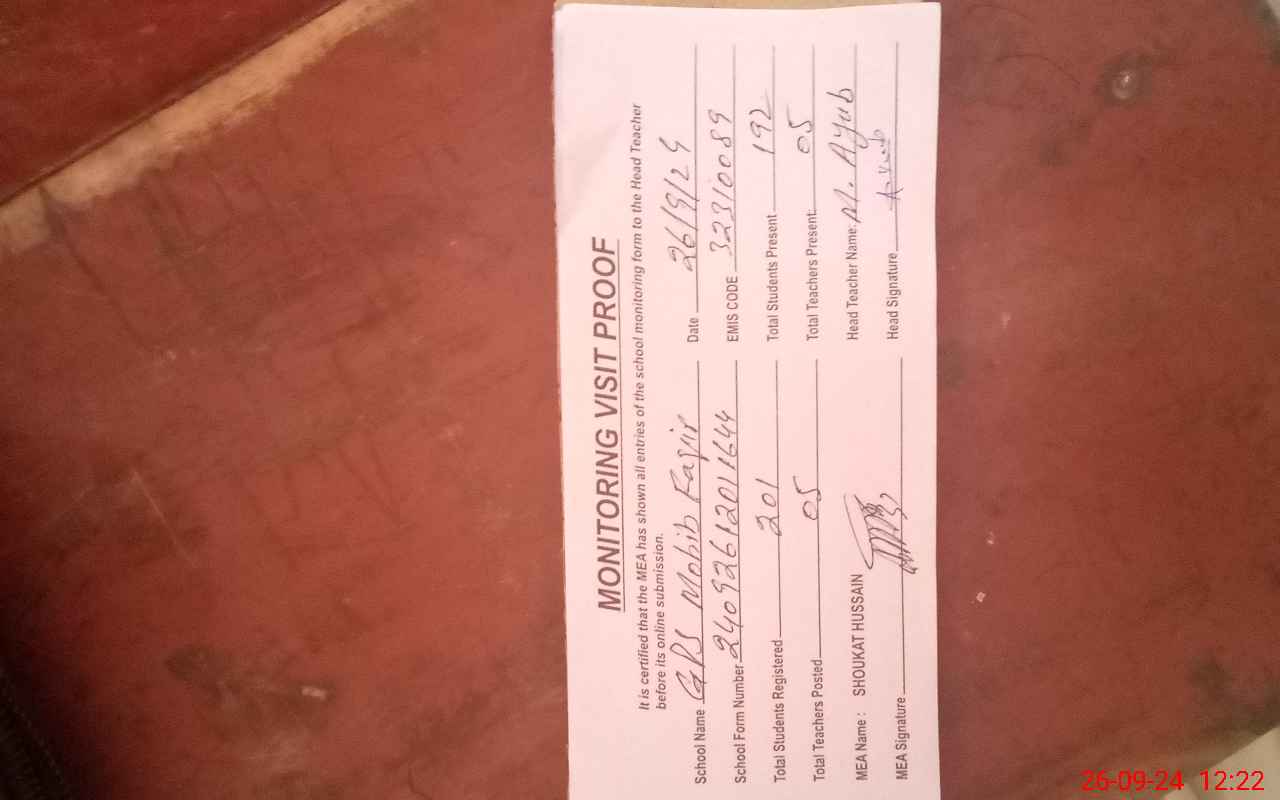 MONITORING VISIT PROOF
It is certified that the MEA has shown all entries of the school monitoring form to the Head Teacher
before its online submission.
School Name GPS Mohib Faqir Date 26/9/24
School Form Number 24092612011644 EMIS CODE 32310089
Total Students Registered 201 Total Students Present 192
Total Teachers Posted 05 Total Teachers Present: 05
MEA Name : SHOUKAT HUSSAIN Head Teacher Name: M. Ayub
MEA Signature Head Signature
26-09-24 12:22